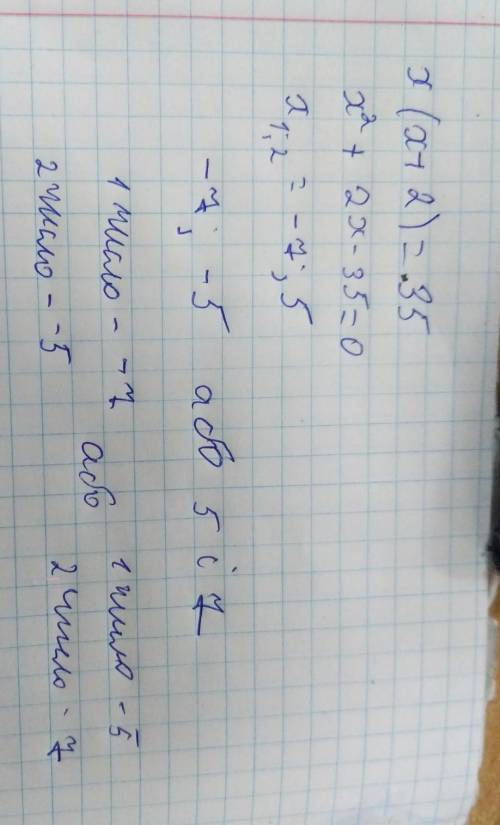 x(x+2)=35
x²+2x-35=0
x₁,₂ = -7; 5
-7; -5 або 5 і 7
1 число - -7
2 число - -5
або
1 число - 5
2 число - 7